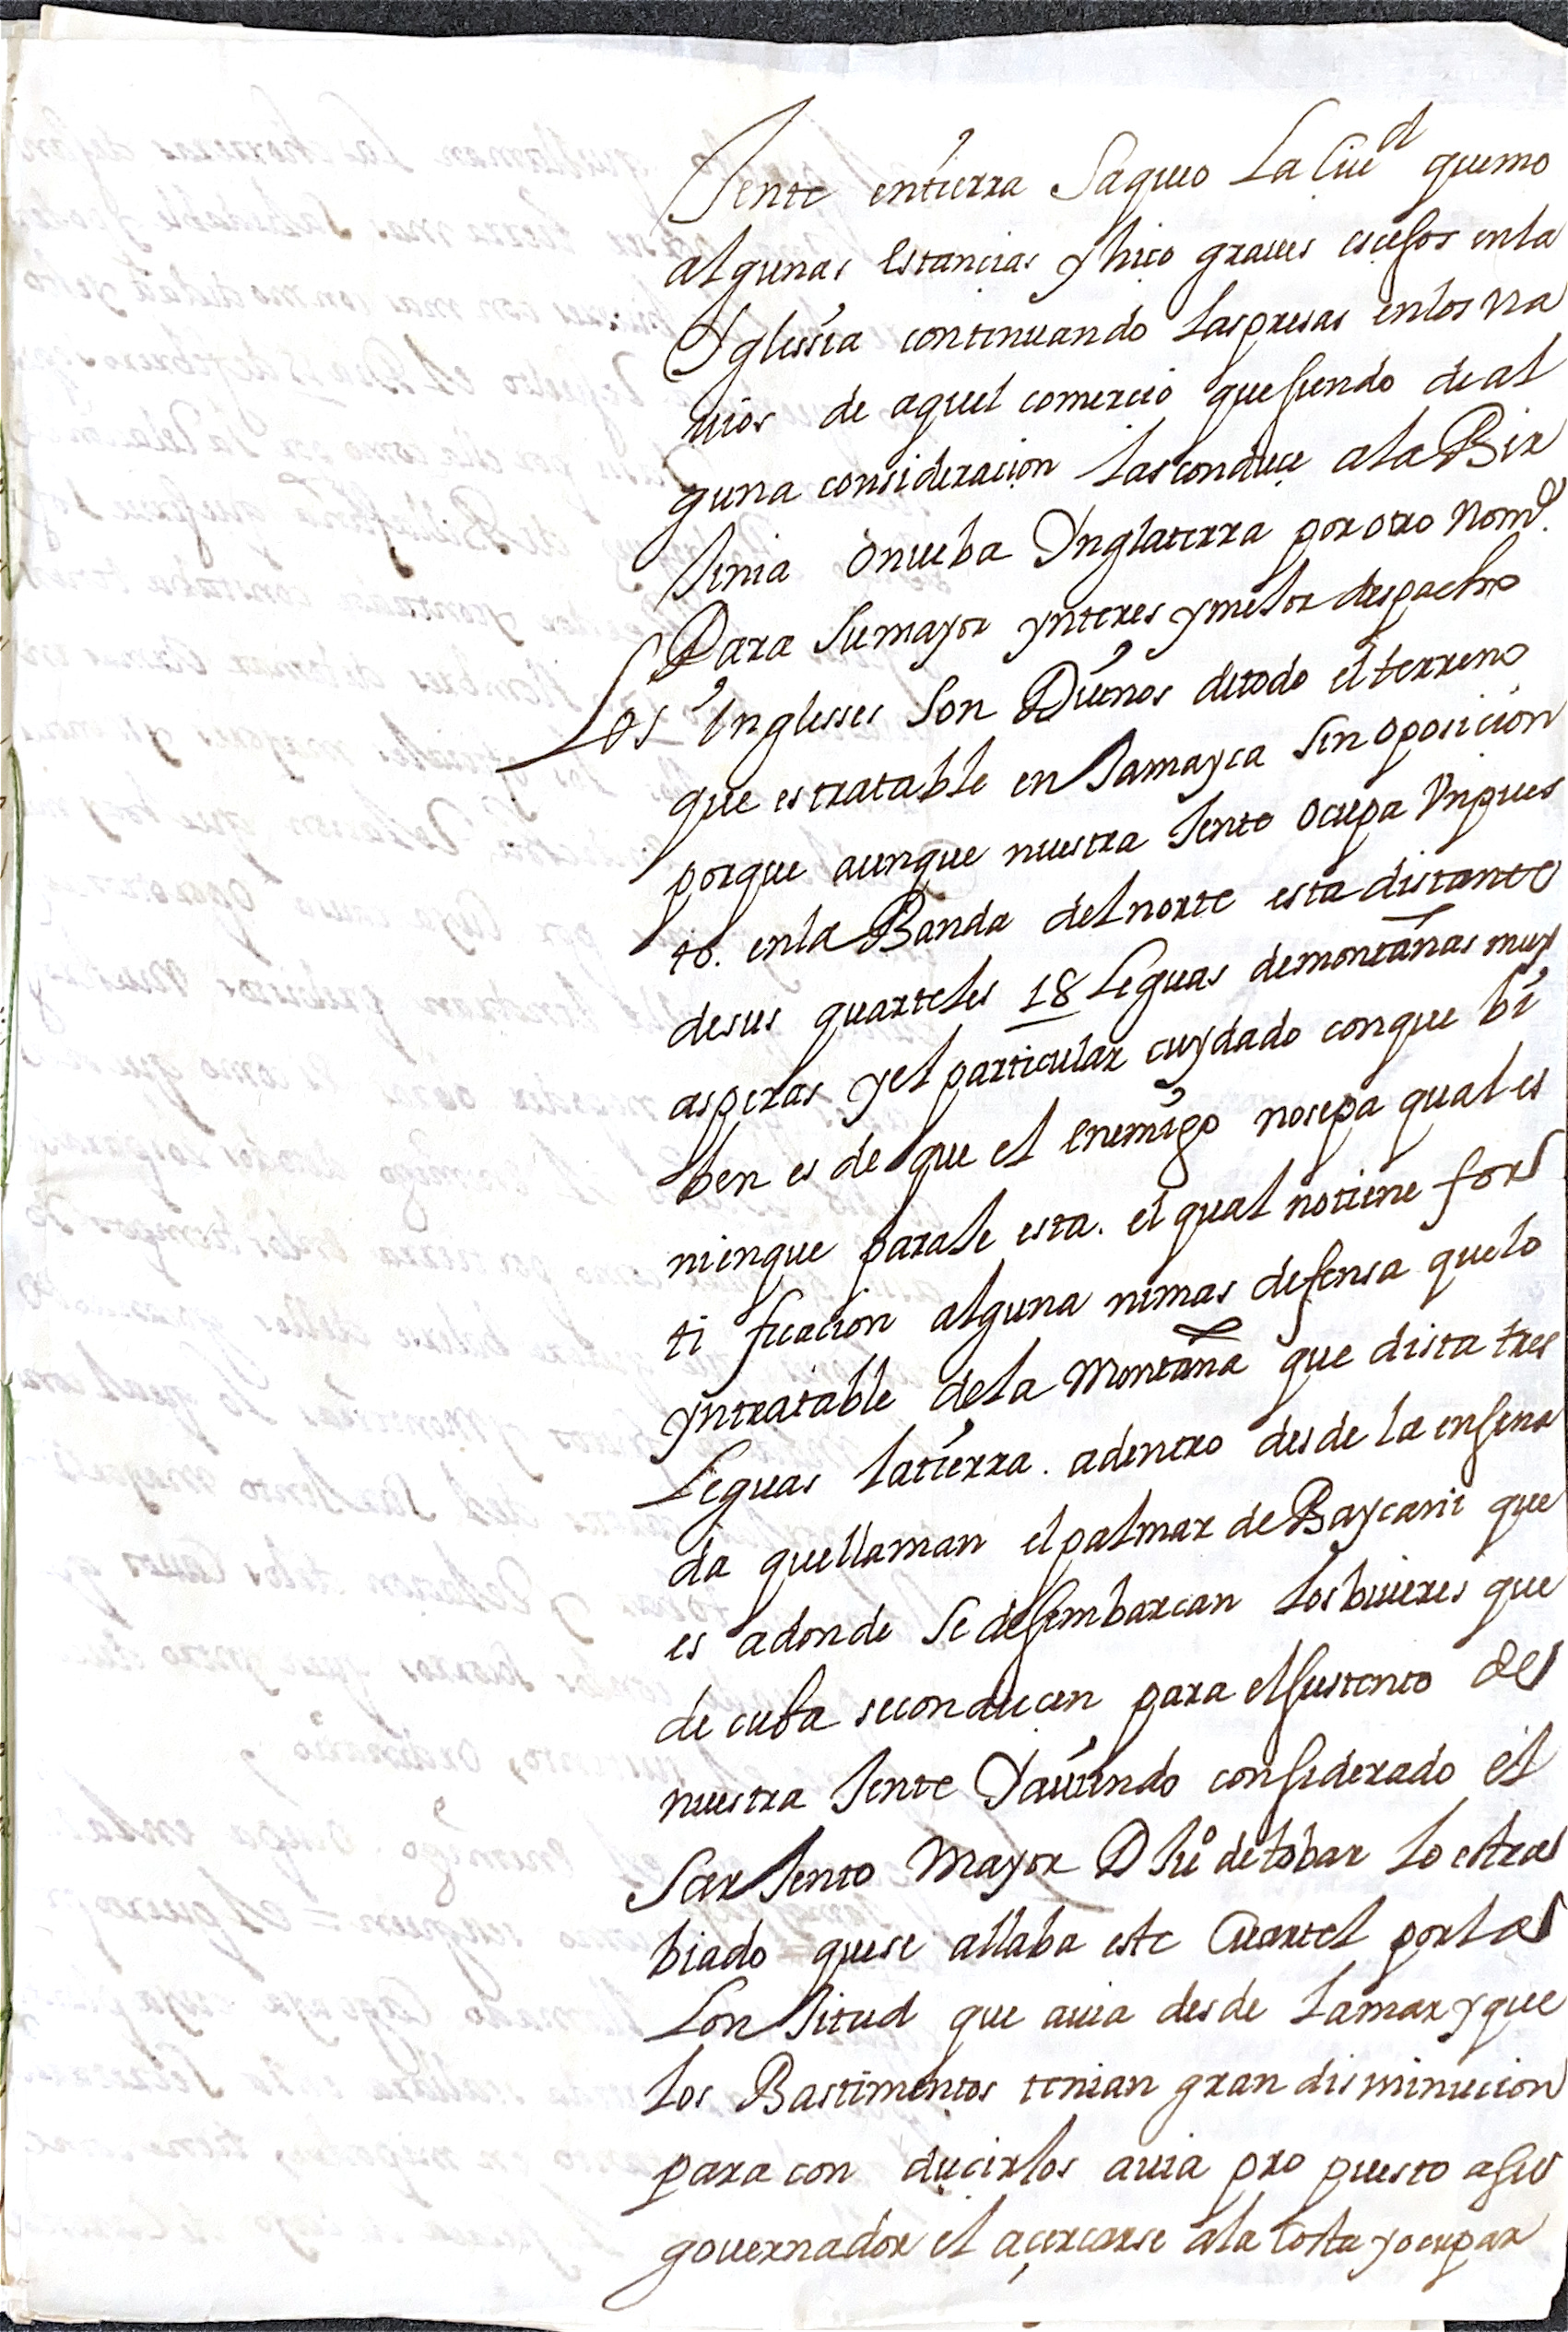 Jente entierra Saqueo La Ciu^d quemo
algunas estancias y hiço graues escesos enla
Yglessia continuando Laspresas enlos na
uios de aquel comercio quesiendo de al
guna consideracion Lasconduce ala Bir
Jinia o nueba Ynglaterra por otro Nom^e.
Para Sumayor ynteres y meJor despacho
Los Inglesses Son Duenos detodo el terreno
que es tratable en Jamayca Sin oposicion
porque aunque nuestra Jente ocupa Vnpues
to. enla Banda delnorte esta distante
desus quarteles 18 Leguas demontañas muy
asperas yel particular cuydado conque bi
ben es de que el enemigo nosepa qual es
nienque paraJe esta. el qual notiene for
ti ficacion alguna nimas defensa quelo
yntratable dela Montaña que dista tres
Leguas latierra. adentro desde la ensena
da quellaman elpalmar de Baycani que
es adonde Se desembarcan Losbiueres que
de cuba seconducen para elsustento de
nuestra Jente Yauiendo considerado el
SarJento Mayor D Ju^o detobar Lo estra
biado quese allaba este Cuartel porla
LonJitud que auia desde Lamar yque
Los Bastimentos tenian gran disminucion
para con ducirlos auia pro puesto asu
gouernador el açercarse ala Costa yocupar